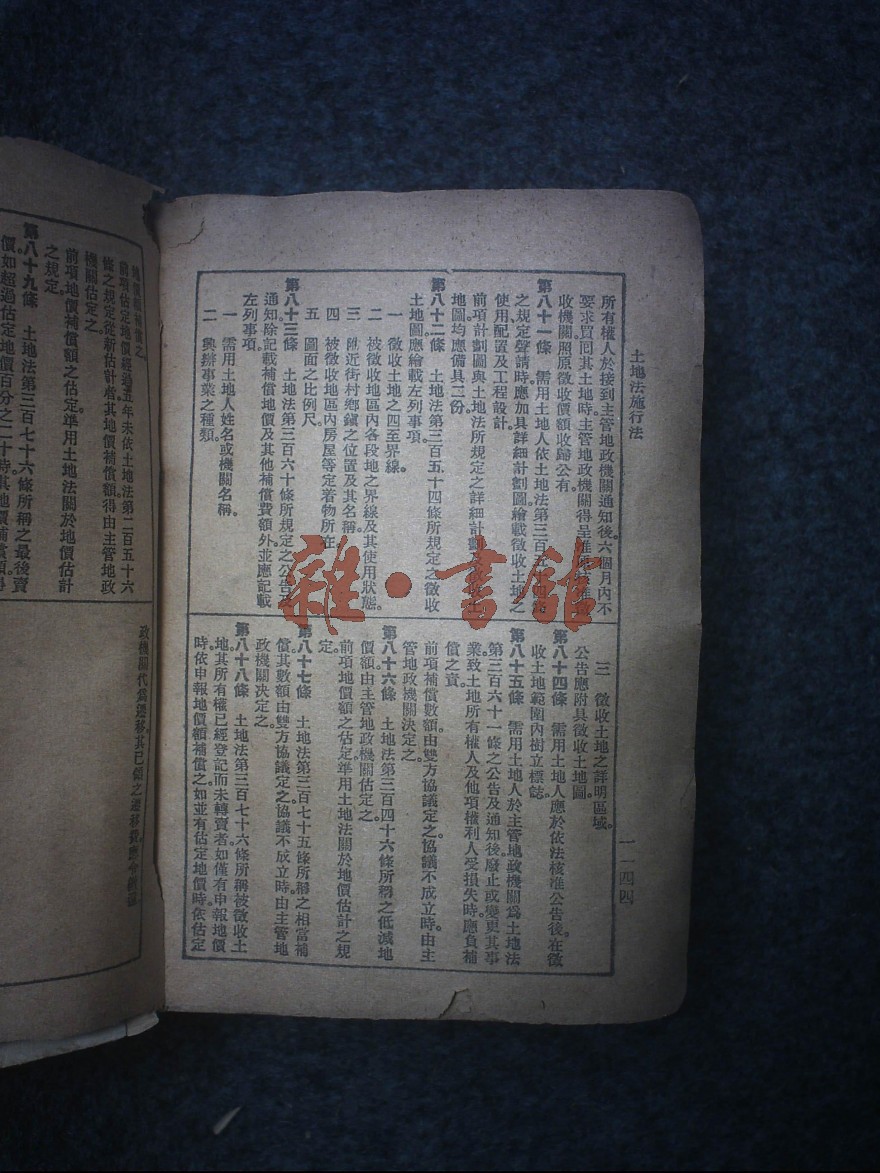 土地法施行法
一一四四
所有權人於接到主管地政機關通知後六個月內不
要求買回其土地時主管地政機關得呈准
收機關照原徵收價額收歸公有。
第八十一條　需用土地人依土地法第三百五十四條
之規定聲請時應加具詳細計劃圖繪載徵收土地之
使用配置及工程設計。
前項計劃圖與土地法所規定之詳細計劃及徵收土
地圖均應備具二份
第八十二條　土地法第三百五十四條所規定之徵收
土地圖應繪載左列事項。
一　徵收土地之四至界線。
二　被徵收地區內各段地之界線及其使用狀態。
三　附近街村鄉鎮之位置及其名稱。
四　被徵收地區內房屋等定着物所在
五　圖面之比例尺。
第八十三條　土地法第三百六十條所規定之公告及
通知除記載補償地價及其他補償費額外並應記載
左列事項。
一　需用土地人姓名或機關名稱。
二　興辦事業之種類。
三　徵收土地之詳明區域。
公告應附具徵收土地圖。
第八十四條　需用土地人應於依法核准公告後在徵
收土地範圍內樹立標誌。
第八十五條　需用土地人於主管地政機關爲土地法
第三百六十一條之公告及通知後廢止或變更其事
業致土地所有權人及他項權利人受損失時應負補
償之責
前項補償數額由雙方協議定之協議不成立時由主
管地政機關決定之。
第八十六條　土地法第三百四十六條所稱之低減地
價額由主管地政機關估定之。
前項地價額之估定準用土地法關於地價估計之規
定。
第八十七條　土地法第三百七十五條所稱之相當補
償其數額由雙方協議定之協議不成立時由主管地
政機關決定之。
第八十八條　土地法第三百七十六條所稱被徵收土
地其所有權已經登記而未轉賣者如僅有申報地價
時依申報地價額補償之如並有估定地價時依估定
地價額補償之。
前項估定地價經過五年未依土地法第二百五十六
條之規定從新估計者其地價補償額得由主管地政
機關估定之
前項地價補償額之估定準用土地法關於地價估計
之規定
第八十九條　土地法第三百七十六條所稱之最後賣
價如超過估定地價百分之二十時其地價補償額得
政機關代爲遷移其已領之遷移費應令
雜·書館